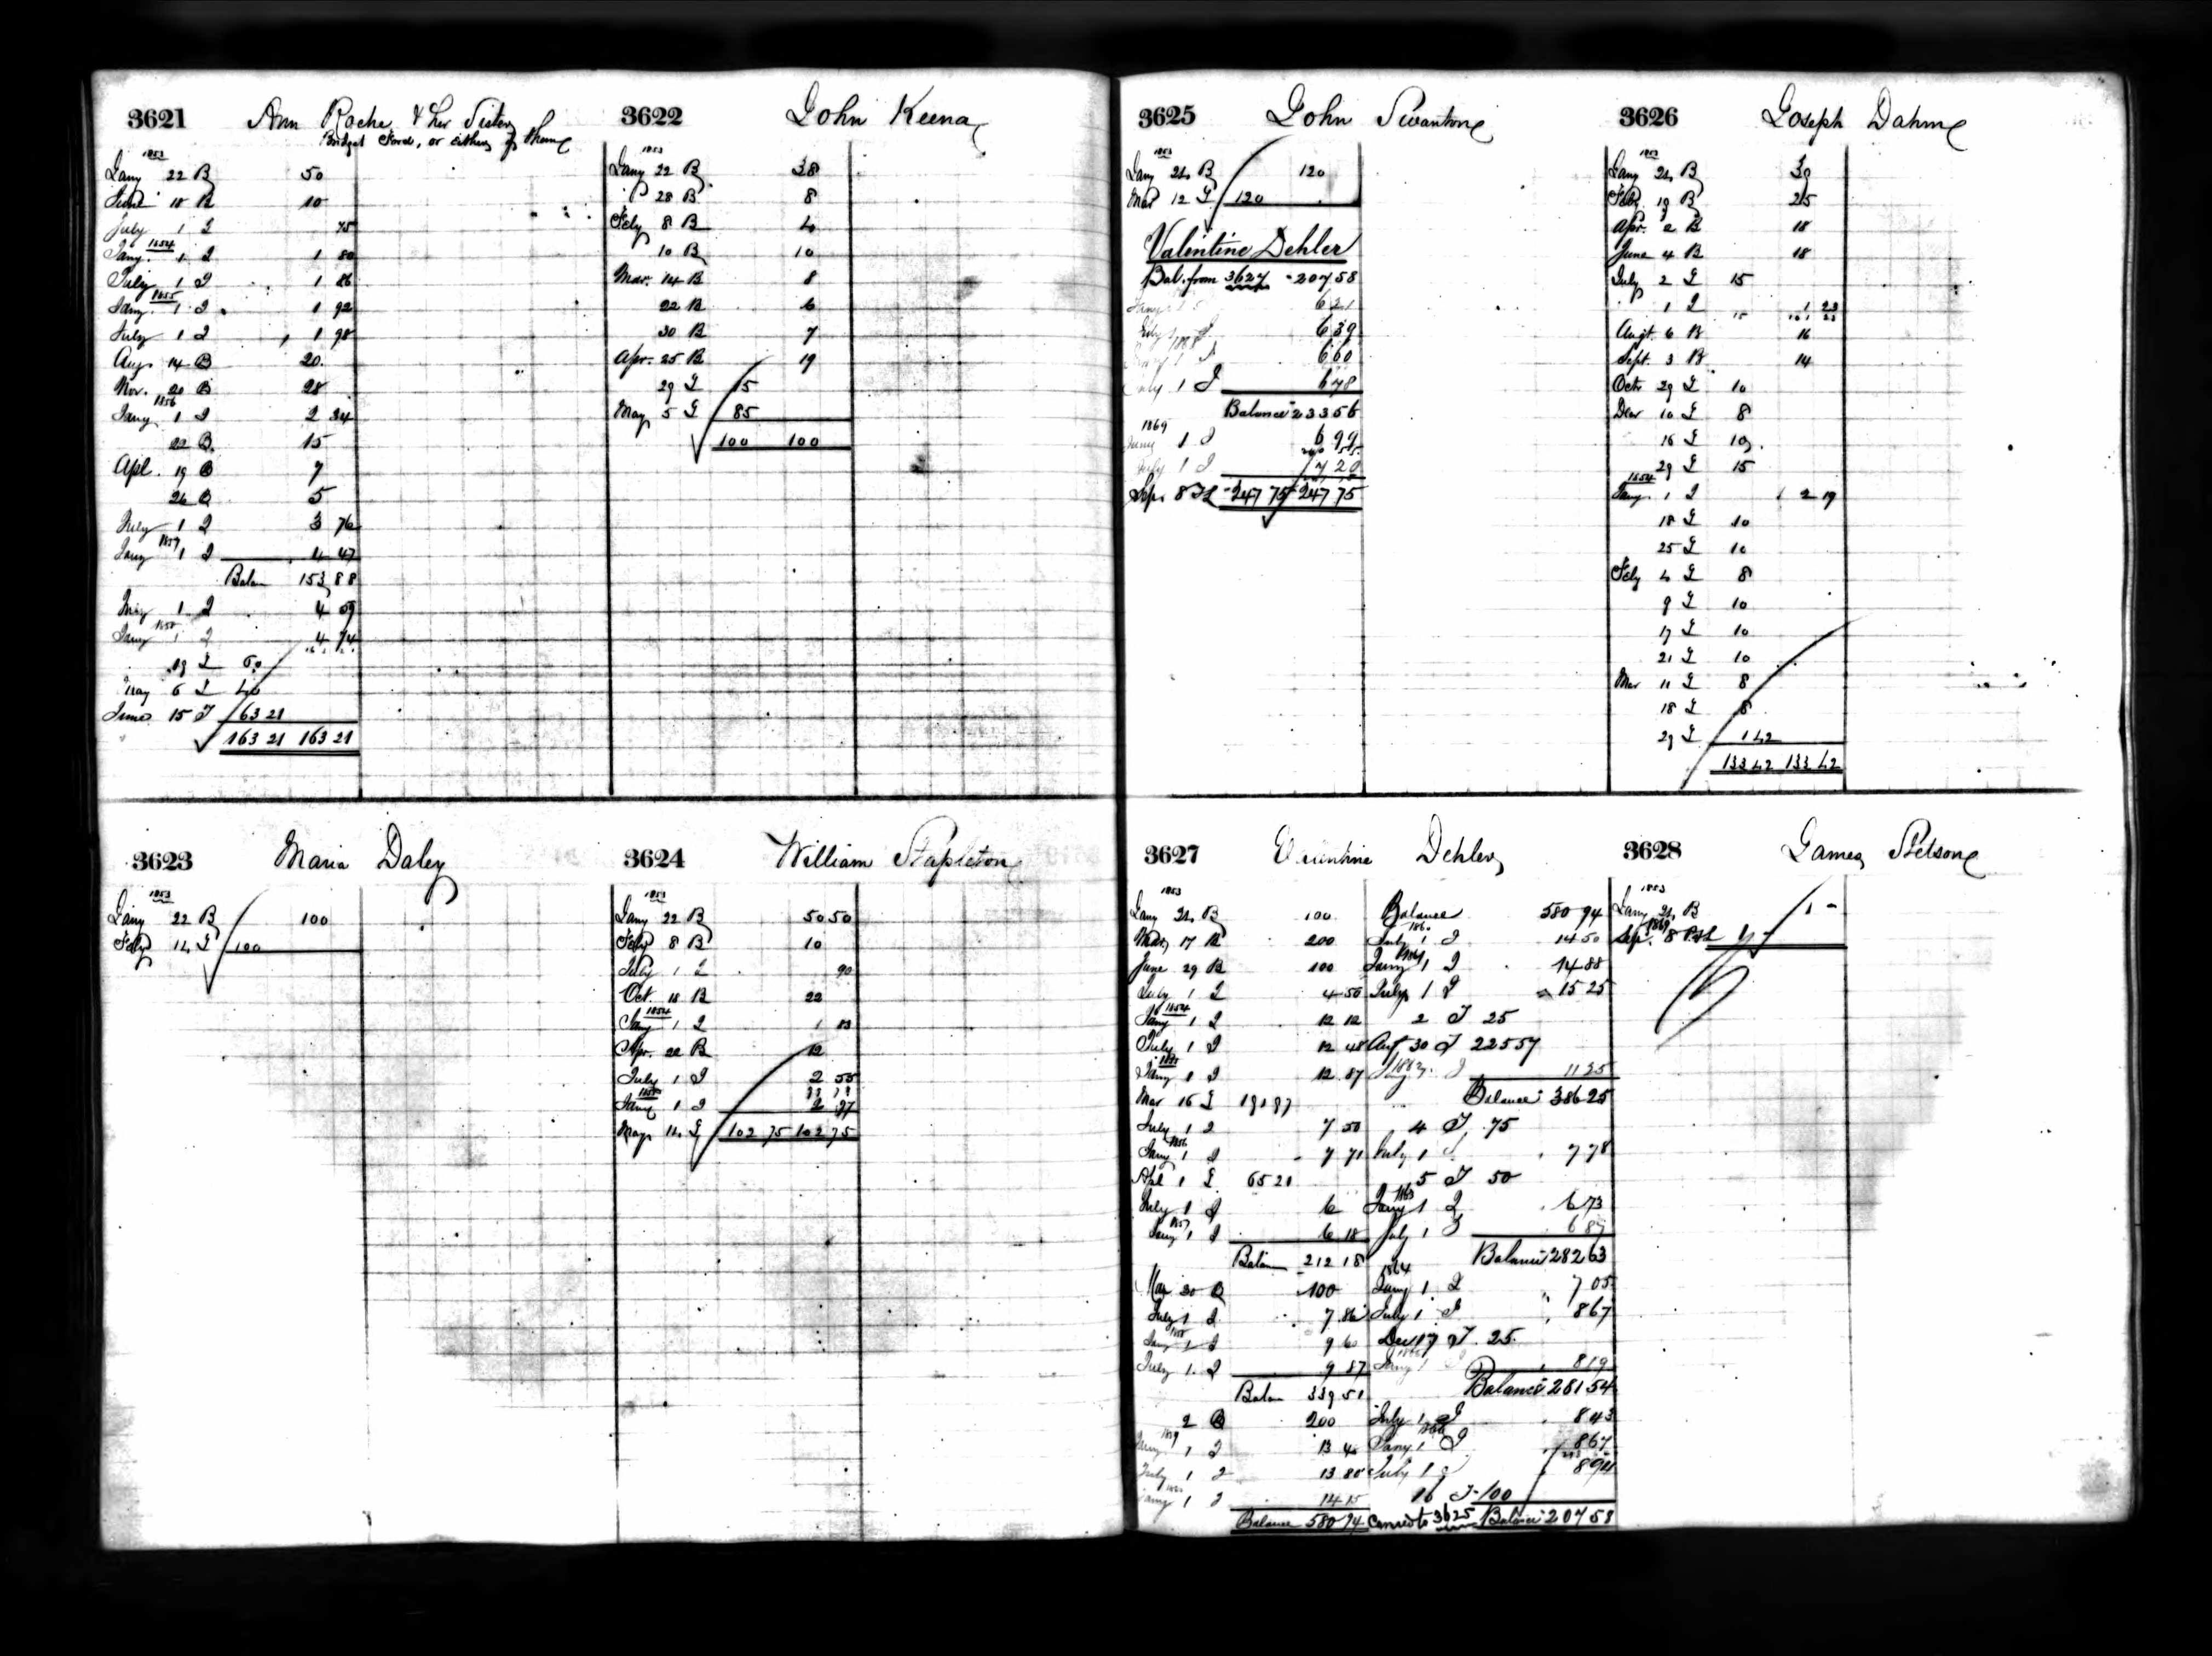 3621 Ann Roche & her Sister
Bridget Ford, or either of them
1853
Jany 22 B 50
June 18 B 10
July 1 I 75
1854
Jany 1 I 1 80
July 1 I 1 86
1855
Jany 1 I 1 92
July 1 I 1 98
Aug. 14 B 20
Nov. 20 B 28
1856
Jany 1 I 2 34
22 B 15
Apl. 19 B 7
26 B 5
July 1 I 3 76
1857
Jany 1 I 4 47
Balan 153 88
July 1 I 4 59
1858
Jany 1 I 4 74
19 L 60
May 6 L 40
June 15 I 63 21
163 21 163 21
3622 John Keena
1853
Jany 22 B 38
28 B 8
Feby 8 B 4
10 B 10
Mar. 14 B 8
22 B 6
30 B 7
Apr. 25 B 19
29 L 15
May 5 L 85
100 100
3623 Maria Daley
1853
Jany 22 B 100
Feby 14 L 100
3624 William Stapleton
1853
Jany 22 B 50 50
Feby 8 B 10
July 1 I 90
Oct. 18 B 22
1854
Jany 1 I 1 83
Apr. 22 B 12
July 1 I 2 55
1855
Jany 1 I 2 97
May 14 L 102 75 102 75
3625 John Swanton
1853
Jany 24 B 120
Mar 12 L 120
Valentine Dehler
Bal. from 3627 207 58
Jany 1 6 21
July 1 I 6 39
1868
1 I 6 60
July 1 I 6 78
Balance 233 56
1869
Jany 1 I 6 99
July 1 I 7 20
Sep. 8 247 75 247 75
3626 Joseph Dahm
1853
Jany 24 B 30
Feby 19 B 25
Apr. 2 B 18
June 4 B 18
July 2 L 15
1 I 1 23
Augt 6 B 16
Sept. 3 B 14
Octr 29 L 10
Decr 10 L 8
16 L 10
29 L 15
1854
Jany 1 I 2 19
18 L 10
25 L 10
Feby 4 L 8
9 L 10
17 L 10
21 L 10
Mar 11 L 8
18 L 8
29 L 1 42
133 42 133 42
3627 Valentine Dehler
1853
Jany 24 B 100
Mar. 17 B 200
June 29 B 100
July 1 I 4 50
1854
Jany 1 I 12 12
July 1 I 12 48
1855
Jany 1 I 12 87
Mar 16 L 191 97
July 1 I 7 50
1856
Jany 1 I 7 71
Apl 1 L 65 21
July 1 I 6
1857
Jany 1 I 6 18
Balan 212 18
May 20 B 100
July 1 I 7 86
1858
Jany 1 I 9 60
July 1 I 9 87
Balan 339 51
2 B 200
1859
Jany 1 I 13 48
July 1 I 13 80
Jany 1 I 14 15
Balance 580 94
Balance 580 94
1860
July 1 I 14 50
1861
Jany 1 I 14 88
July 1 I 15 25
2 I 25
Aug 30 I 225 57
1862
Jany 1 I 11 25
Balance 386 25
4 I 75
July 1 I 7 78
5 I 50
1863
Jany 1 I 6 73
July 1 I 6 87
Balance 282 63
1864
Jany 1 I 7 05
July 1 I 8 67
Dec 17 I 25
Jany 1 8 19
Balance 281 54
July 1 I 8 43
1866
Jany 1 I 8 67
July 1 I 8 94
16 I 100
Carried to 3625 Balance 207 58
3628 James Stetson
1853
Jany 24 B 1 -
1869
Sep. 8